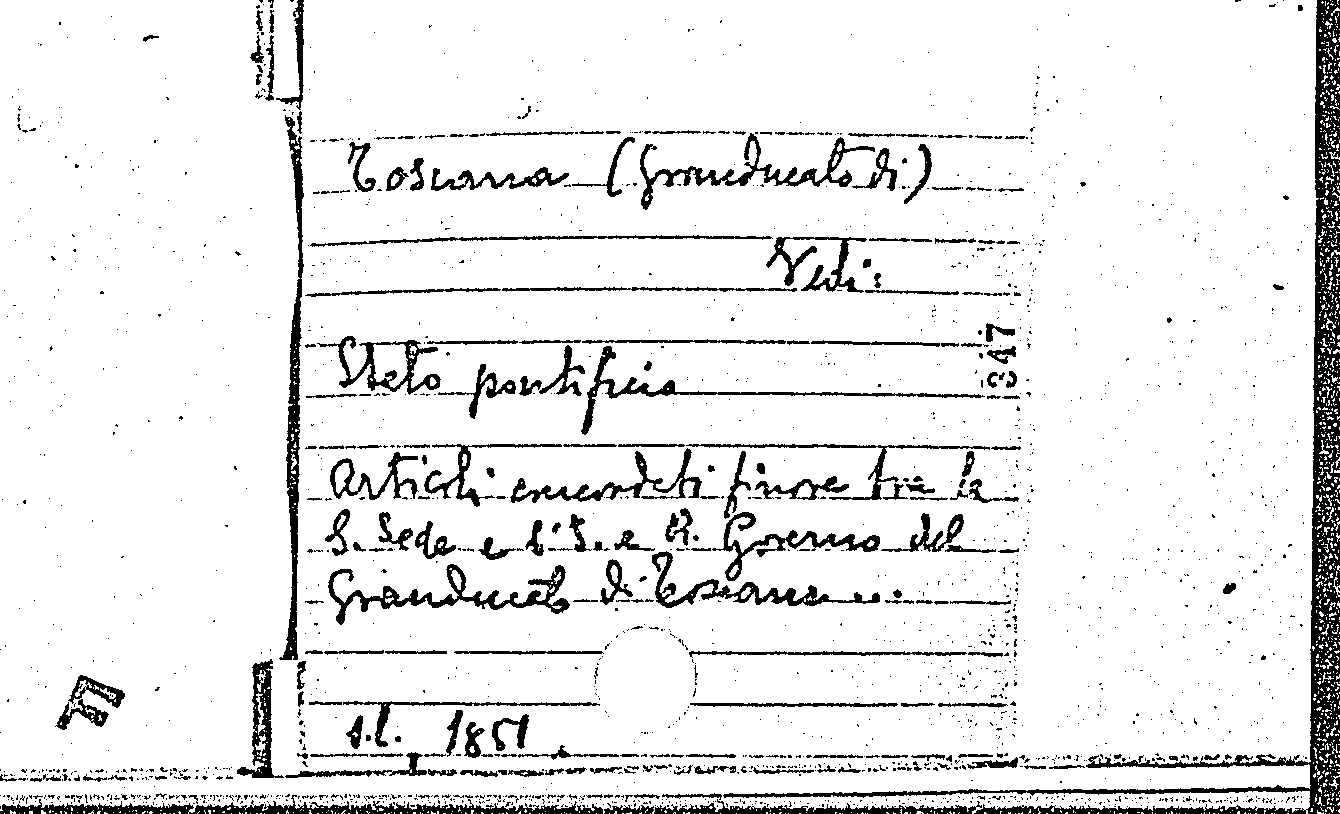 Toscana (Granducato di)
Vedi:
347
Stato pontificio
Articoli concordati finora tra la
S. Sede e l'I. e R. Governo del
Granducato di Toscana...
s.l. 1851.
F